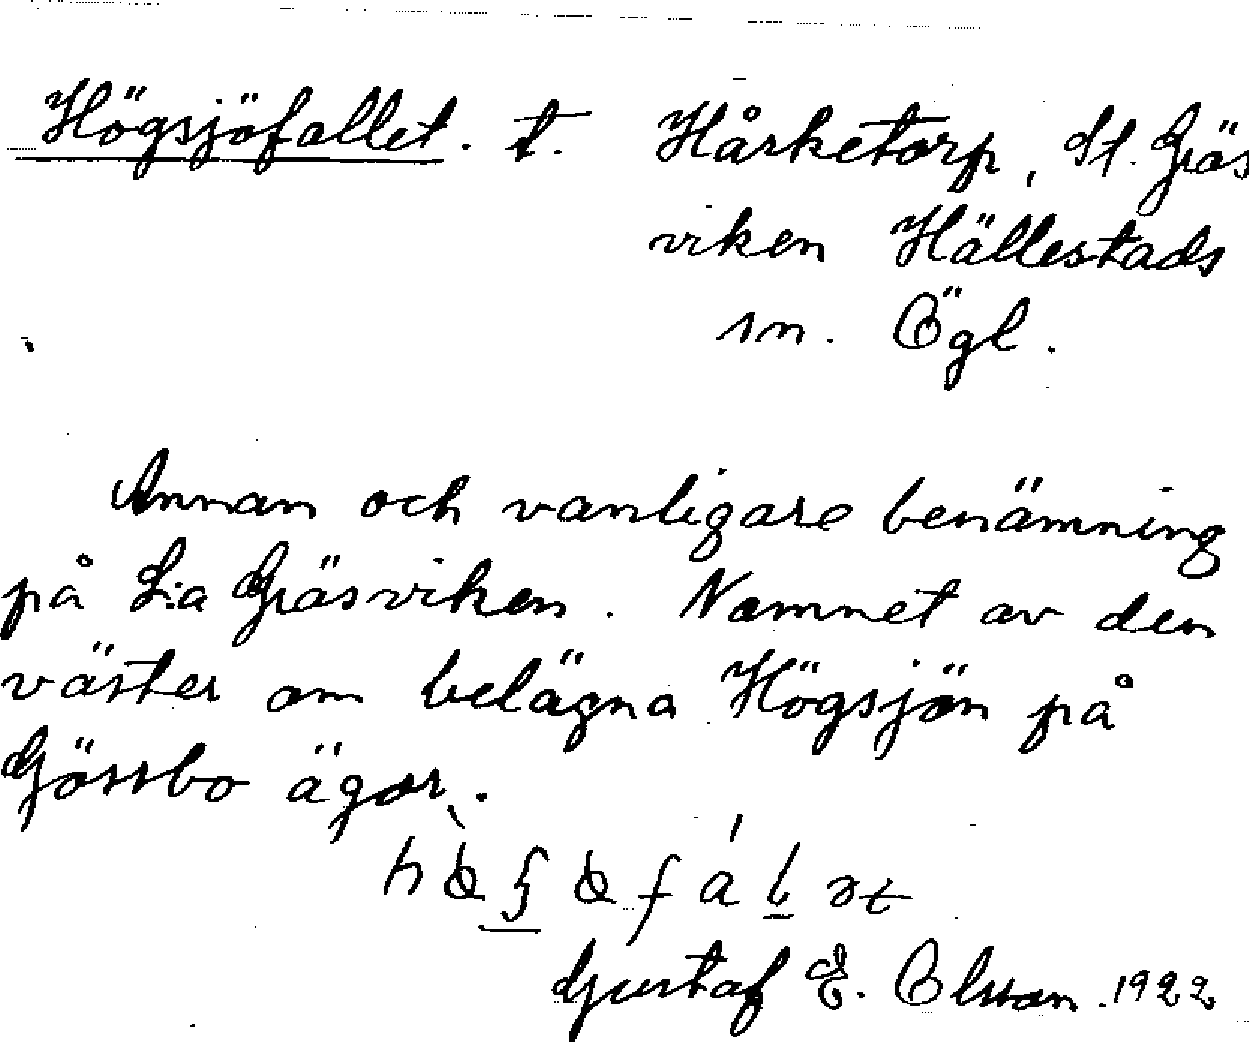 Högsjöfallet. t. Hårketorp, St. Gräs
viken Hällestads
sn. Ögl.
Annan och vanligare benämning
på L:a Gräsviken. Namnet av den
väster om belägna Högsjön på
Gössbo ägor.
Gustaf E. Olsson. 1922